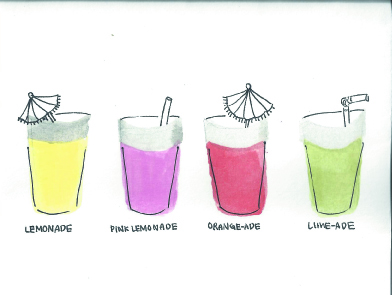 LEMONADE
PINK LEMONADE
ORANGE-ADE
LIME-ADE